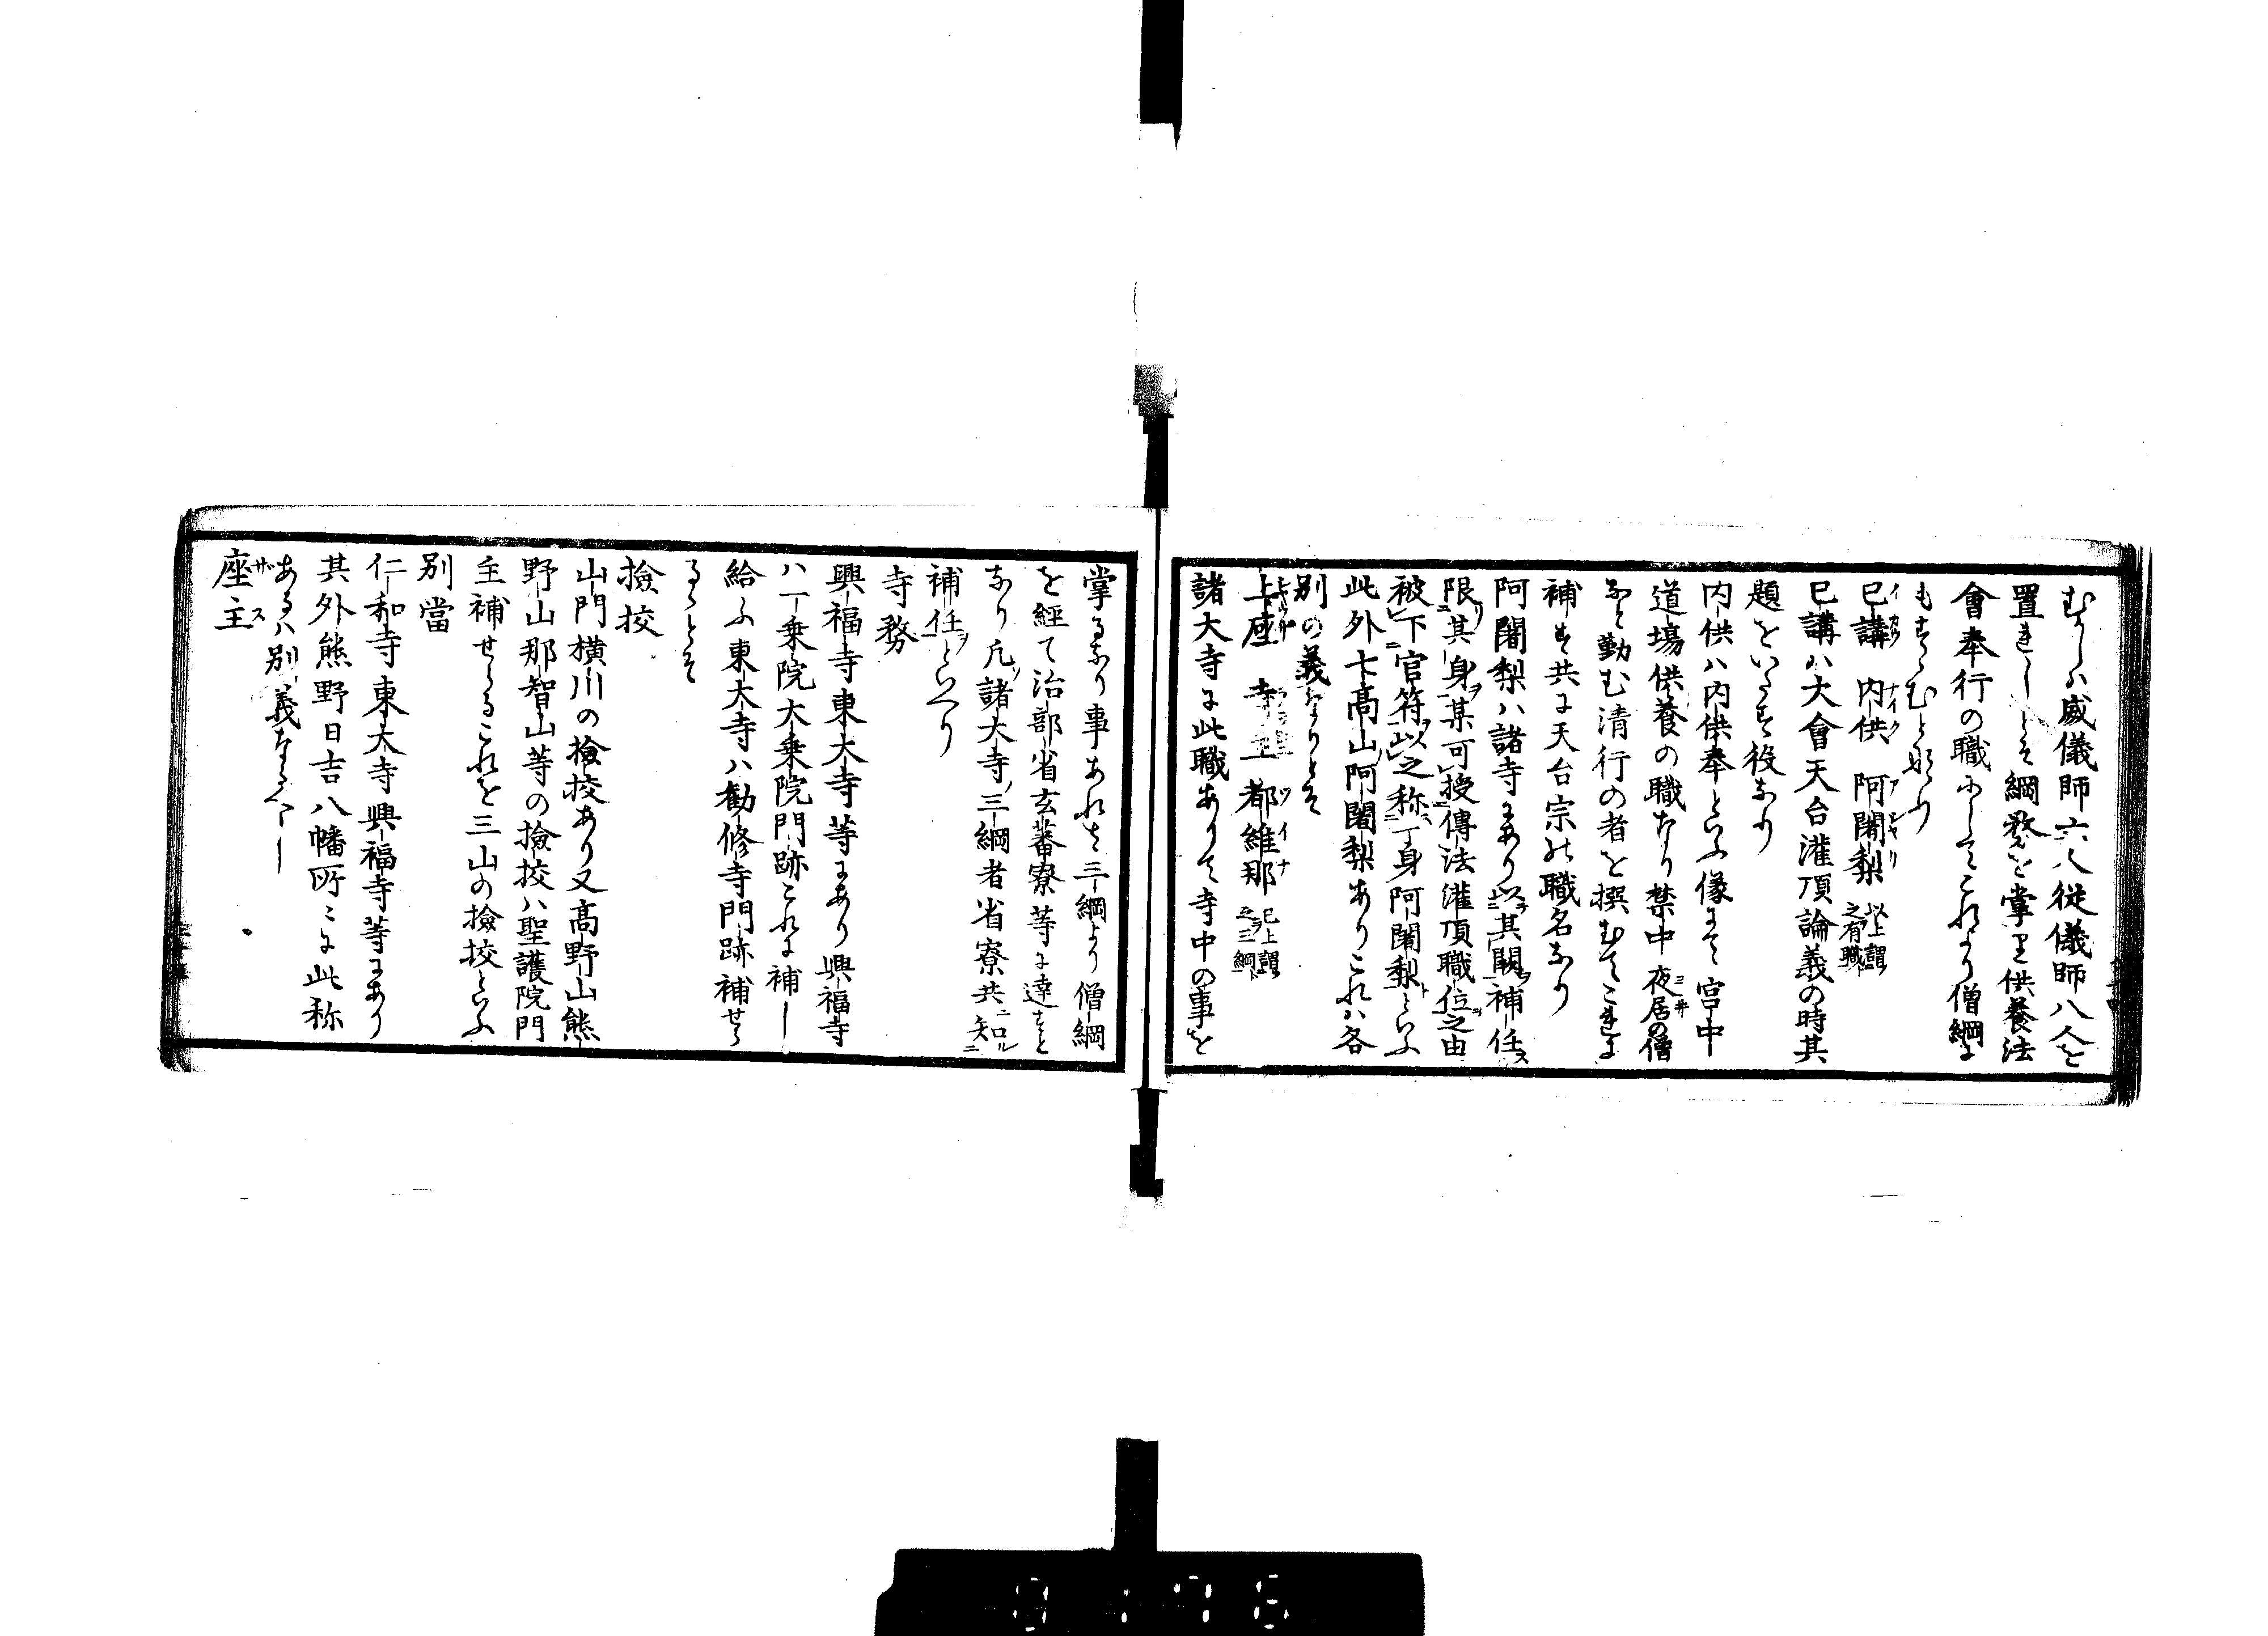 むかしハ威儀師六人従儀師八人を
置れしとそ綱務を掌り供養法
會奉行の職にしてこれより僧綱に
もすゝむと也
已講 内供 阿闍梨 以上謂之有職
已講ハ大會天台灌頂論義の時其
題をいたす役なり
内供ハ内供奉といふ儀にて宮中
道場供養の職なり禁中夜居の僧
なと勤む清行の者を撰むてこれに
補す共に天台宗の職名なり
阿闍梨ハ諸寺にあり以其闕補任ス
限其身某可授傳法灌頂職位之由
被下官符以之称一身阿闍梨といふ
此外七髙山阿闍梨ありこれハ各
別の義なりとそ
上座 寺主 都維那 已上謂之三綱
諸大寺に此職ありて寺中の事を
掌るなり事あれは三綱より僧綱
を経て治部省玄蕃寮等に達すと
なり凡諸大寺ノ三綱者省寮共ニ知
補任ヲといへり
寺務
興福寺東大寺等にあり興福寺
ハ一乗院大乗院門跡これに補し
給ふ東大寺ハ勧修寺門跡補せら
るゝとそ
撿挍
山門横川の撿挍あり又髙野山熊
野山那智山等の撿挍ハ聖護院門
主補せらるこれを三山の撿挍といふ
別當
仁和寺東大寺興福寺等にあり
其外熊野日吉八幡所〻に此称
あるハ別義なるへし
座主